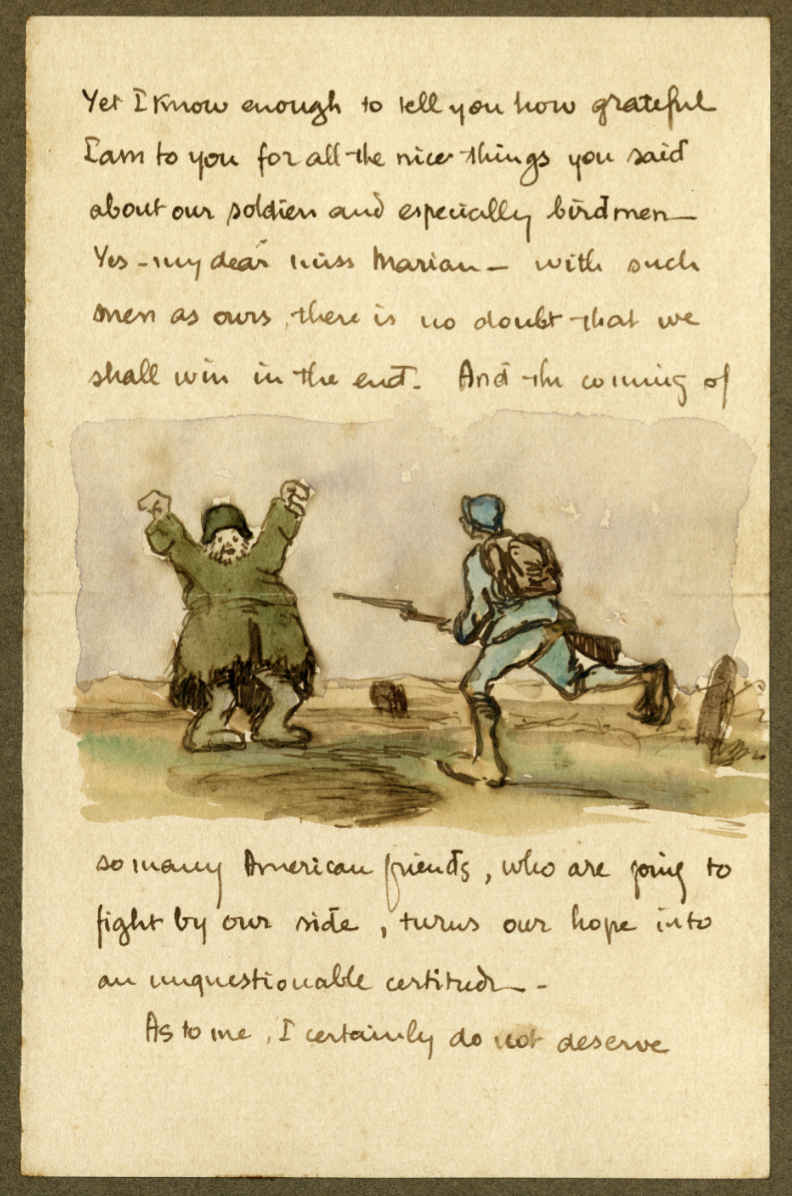 Yet I know enough to tell you how grateful
I am to you for all the nice things you said
about our soldiers and especially birdmen—
Yes - my dear miss Marian — with such
men as ours, there is no doubt that we
shall win in the end. And the coming of
so many American friends, who are going to
fight by our side, turns our hope into
an unquestionable certitude -
As to me, I certainly do not deserve